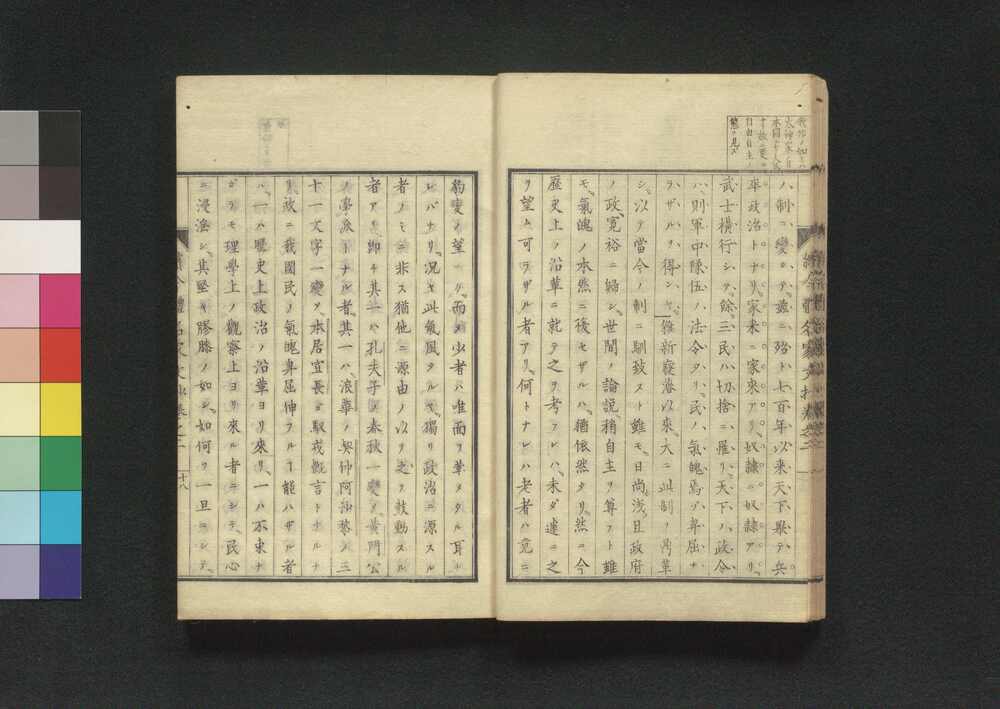 ハ、制ニ變シテ、遂ニ殆ト七百年以来、天下擧テ、兵
卒政治トナリ、家来ニ家来アリ、奴隷ニ奴隷アリ、
武士横行シテ、餘、三民ハ切捨ニ罹リ、天下ハ政令
ハ、則軍中隊伍ノ法令タリ、民ノ氣魄焉ゾ卑屈ナ
ラザルヲ得ンヤ、維新廢藩以来、大ニ此制ヲ
シ、以テ當今ノ制ニ馴致スト雖モ、日尚浅且政府
ノ政、寛裕ニ歸シ、世間ノ論説稍自主ヲ算フト雖
モ、氣魄ノ本然ニ復セザルハ、猶依然タリ、然ニ今
歴史上ノ沿革ニ就テ之ヲ考フレハ、未ダ遽ニ之
ヲ望ム可ラザル者アリ、何トナレハ老者ハ竟ニ
豹變ノ望ナク、而シテ少者ハ唯面ヲ革タル耳ト
レバナリ、况ヤ此氣風タルヤ、獨リ政治ニ源スル
者ノミニ非ス猶他ニ源由ノ以テ之ヲ鼓動スル
者アリ、即チ其一ハ孔夫子ノ春秋一變シテ黄門公
ノ學派トナル者、其一ハ浪華ノ契仲阿闍黎ノ三
十一文字一變シテ本居宣長ヨ馭戎慨言トナルナ
リ、故ニ我國民ノ氣魄卑屈伸フルヿ能ハザル者
ハ、一ハ歴史上政治ノ沿革ヨリ來リ、一ハ不束ナ
ガラモ理學上ノ觀察上ヨリ來ル者ニシテ、民心
ニ浸淫シ、其堅キ膠漆ノ如シ、如何ヲ一旦ニシテ、
十八